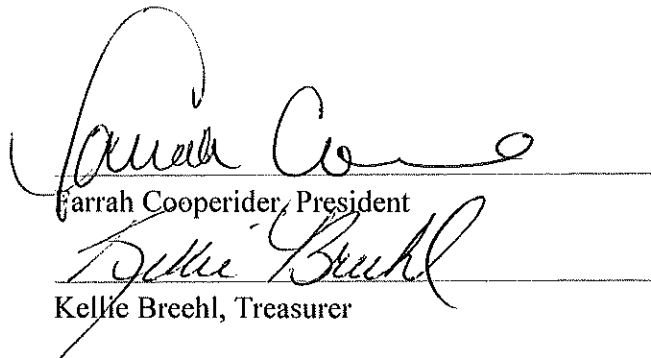 Farrah Coo
Farrah Cooperider, President
Kellie Breehl
Kellie Breehl, Treasurer